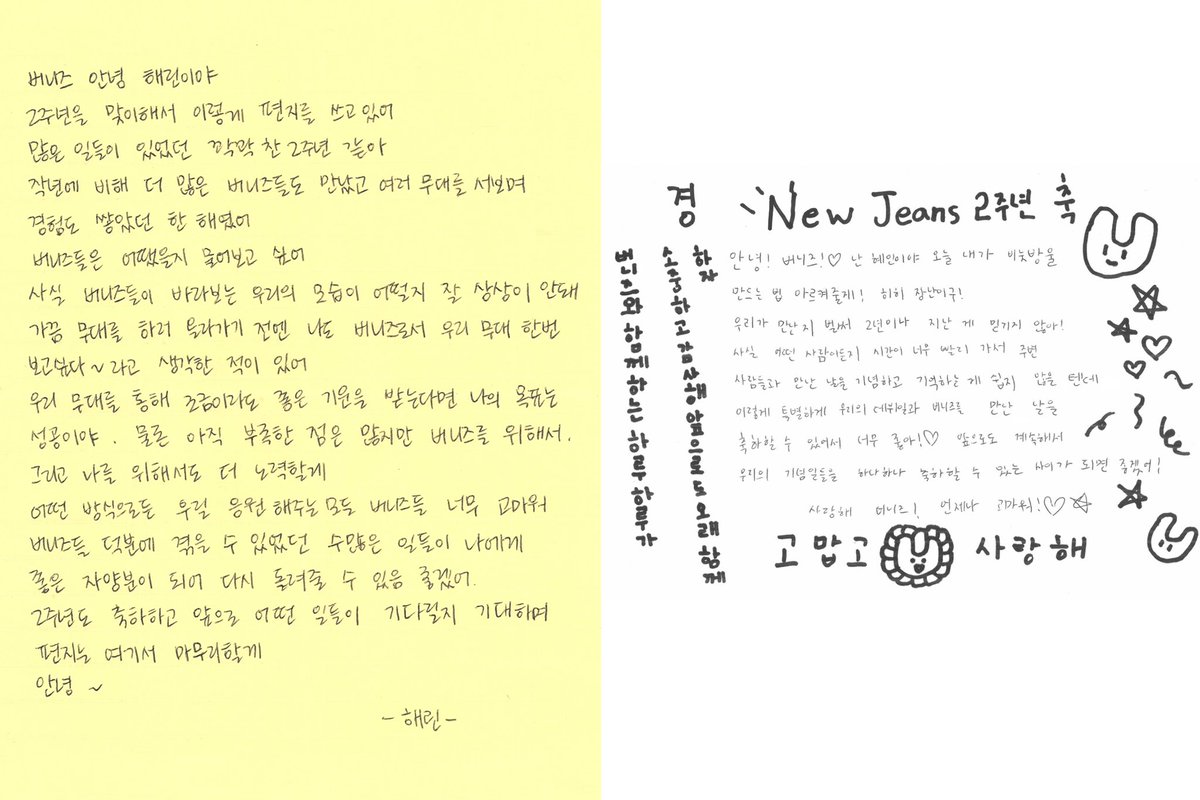 버니즈 안녕 해린이야
2주년을 맞이해서 이렇게 편지를 쓰고 있어
많은 일들이 있었던 꽉꽉 찬 2주년 같아
작년에 비해 더 많은 버니즈들도 만났고 여러 무대를 서보며
경험도 쌓았던 한 해였어
버니즈들은 어땠을지 물어보고 싶어
사실 버니즈들이 바라보는 우리의 모습이 어떨지 잘 상상이 안돼
가끔 무대를 하러 올라가기 전엔 나도 버니즈로서 우리 무대 한번
보고싶다~ 라고 생각한 적이 있어
우리 무대를 통해 조금이라도 좋은 기운을 받는다면 나의 목표는
성공이야. 물론 아직 부족한 점은 많지만 버니즈를 위해서.
그리고 나를 위해서도 더 노력할게
어떤 방식으로든 우릴 응원해주는 모든 버니즈들 너무 고마워
버니즈들 덕분에 겪을 수 있었던 수많은 일들이 나에게
좋은 자양분이 되어 다시 돌려줄 수 있음 좋겠어.
2주년도 축하하고 앞으로 어떤 일들이 기다릴지 기대하며
편지는 여기서 마무리할게
안녕 ~
- 해린 -
경 New Jeans 2주년 축
버니즈와 함께하는 하루하루가
소중하고 감사해 앞으로도 오래 함께
하자
안녕! 버니즈!♡ 난 혜인이야 오늘 내가 비눗방울
만드는 법 아르켜줄게! 히히 장난이구!
우리가 만난지 벌써 2년이나 지난 게 믿기지 않아!
사실 어떤 사람이든지 시간이 너무 빨리 가서 주변
사람들과 만난 날을 기념하고 기억하는 게 쉽지 않을 텐데
이렇게 특별하게 우리의 데뷔일과 버니즈를 만난 날을
축하할 수 있어서 너무 좋아!♡ 앞으로도 계속해서
우리의 기념일들을 하나하나 축하할 수 있는 사이가 되면 좋겠어!
사랑해 버니즈! 언제나 고마워!♡☆
고맙고 사랑해